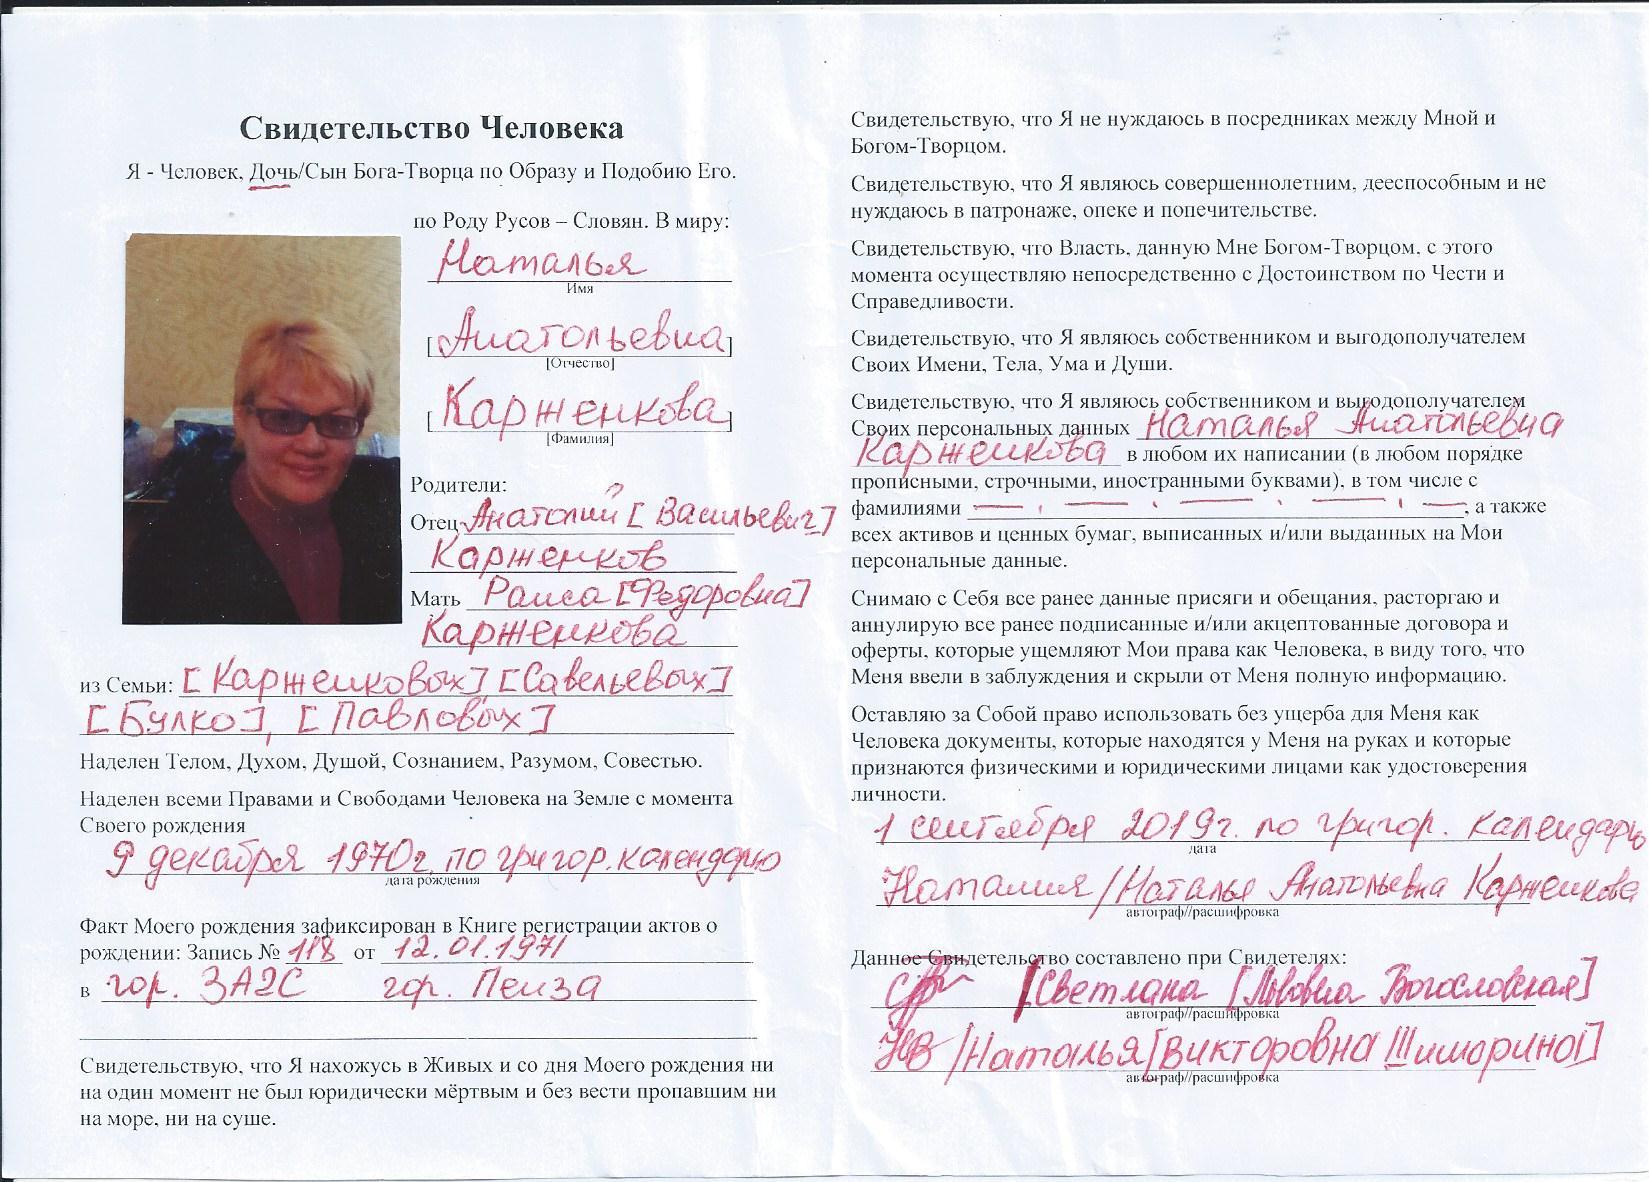 Свидетельство Человека
Я - Человек, Дочь/Сын Бога-Творца по Образу и Подобию Его.
по Роду Русов – Словян. В миру:
Наталья
Имя
[Анатольевна]
[Отчество]
[Карженкова]
[Фамилия]
Родители:
Отец Анатолий [Васильевич]
Карженков
Мать Раиса [Федоровна]
Карженкова
из Семьи: [Карженковых], [Савельевых]
[Булко], [Павловых]
Наделен Телом, Духом, Душой, Сознанием, Разумом, Совестью.
Наделен всеми Правами и Свободами Человека на Земле с момента
Своего рождения
9 декабря 1970г. по григор. календарю
дата рождения
Факт Моего рождения зафиксирован в Книге регистрации актов о
рождении: Запись № 118 от 12.01.1971
в гор. ЗАГС гор. Пенза
Свидетельствую, что Я нахожусь в Живых и со дня Моего рождения ни
на один момент не был юридически мёртвым и без вести пропавшим ни
на море, ни на суше.
Свидетельствую, что Я не нуждаюсь в посредниках между Мной и
Богом-Творцом.
Свидетельствую, что Я являюсь совершеннолетним, дееспособным и не
нуждаюсь в патронаже, опеке и попечительстве.
Свидетельствую, что Власть, данную Мне Богом-Творцом, с этого
момента осуществляю непосредственно с Достоинством по Чести и
Справедливости.
Свидетельствую, что Я являюсь собственником и выгодополучателем
Своих Имени, Тела, Ума и Души.
Свидетельствую, что Я являюсь собственником и выгодополучателем
Своих персональных данных Наталья Анатольевна
Карженкова в любом их написании (в любом порядке
прописными, строчными, иностранными буквами), в том числе с
фамилиями — , — , — , — , — , а также
всех активов и ценных бумаг, выписанных и/или выданных на Мои
персональные данные.
Снимаю с Себя все ранее данные присяги и обещания, расторгаю и
аннулирую все ранее подписанные и/или акцептованные договора и
оферты, которые ущемляют Мои права как Человека, в виду того, что
Меня ввели в заблуждения и скрыли от Меня полную информацию.
Оставляю за Собой право использовать без ущерба для Меня как
Человека документы, которые находятся у Меня на руках и которые
признаются физическими и юридическими лицами как удостоверения
личности.
1 сентября 2019г. по григор. календарь
дата
Наталия/Наталья Анатольевна Карженкова
автограф//расшифровка
Данное Свидетельство составлено при Свидетелях:
/Светлана [Львовна Богословская]
автограф//расшифровка
/Наталья [Викторовна Шишорина]
автограф//расшифровка